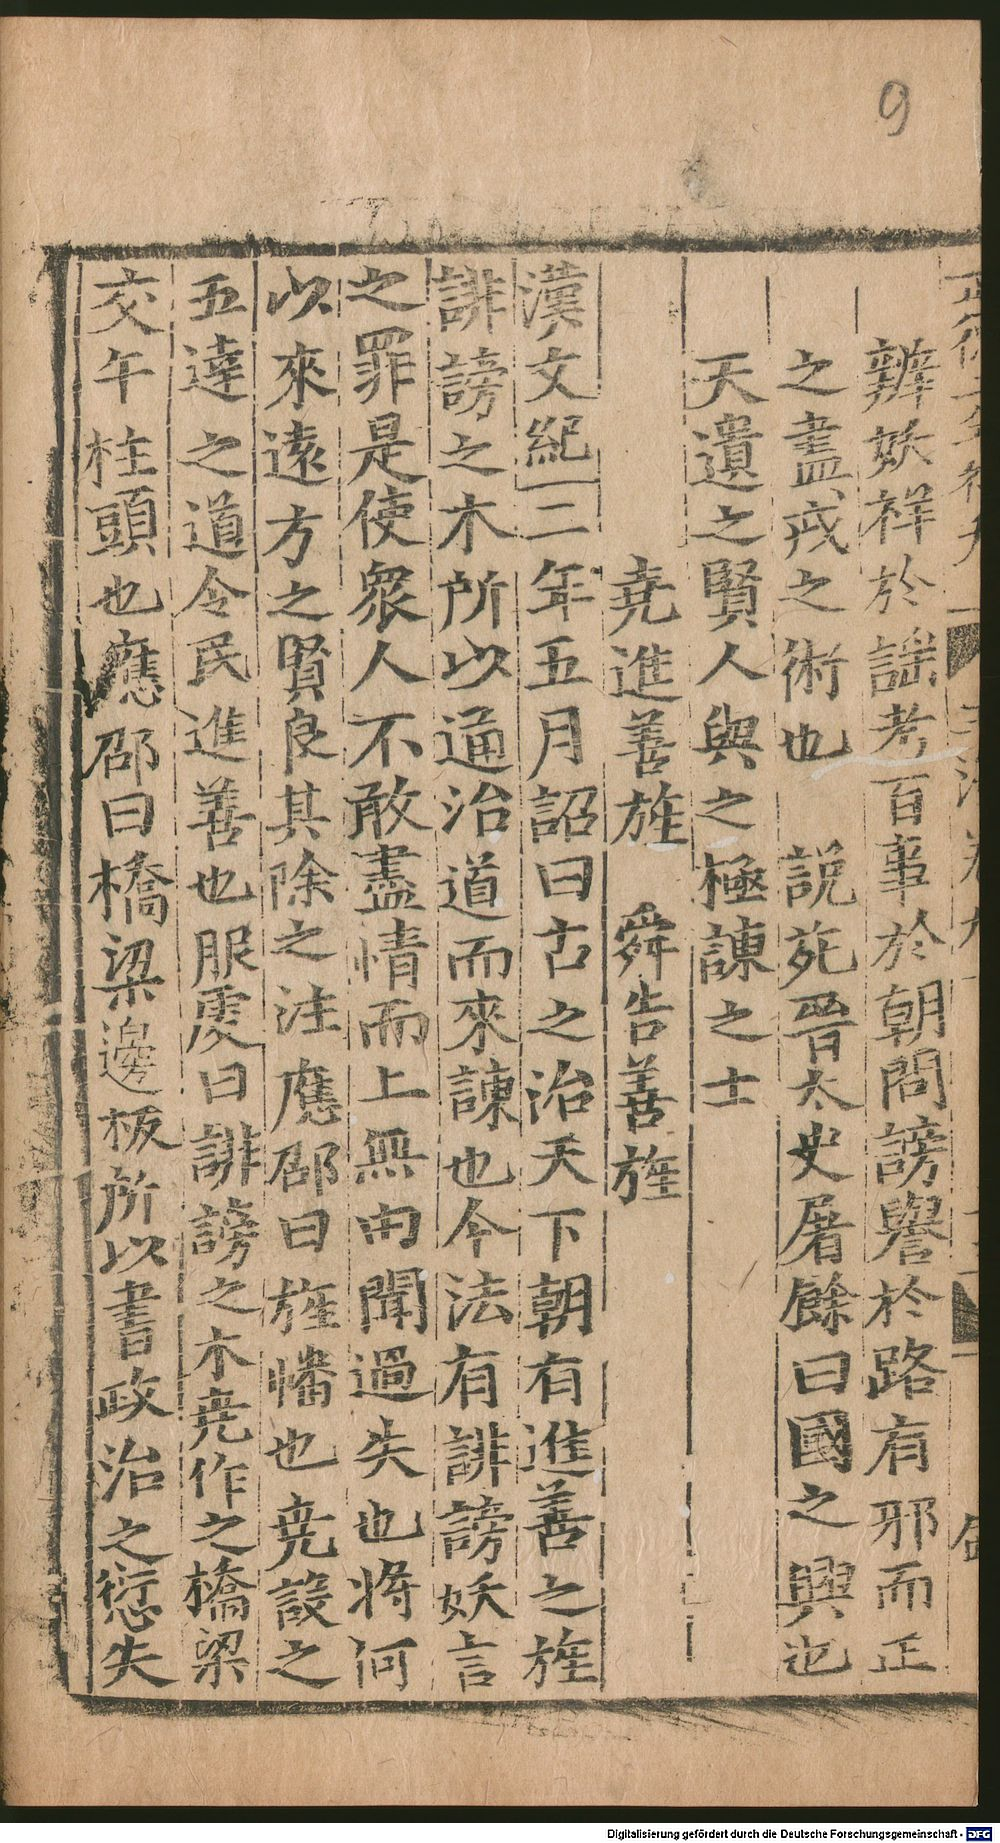 9
辨妖祥於謡考百事於朝問謗譽於路有邪而正
之盡戒之術也 說苑晉太史屠餘曰國之興也
天遺之賢人與之極諫之士
堯進善旌 舜告善旌
漢文紀二年五月詔曰古之治天下朝有進善之旌
誹謗之木所以通治道而來諫也今法有誹謗妖言
之罪是使衆人不敢盡情而上無由聞過失也將何
以來遠方之賢良其除之注應邵曰旌幡也堯設之
五達之道令民進善也服虔曰誹謗之木堯作之橋梁
交午柱頭也應邵曰橋梁邊板所以書政治之愆失
Digitalisierung gefördert durch die Deutsche Forschungsgemeinschaft - DFG